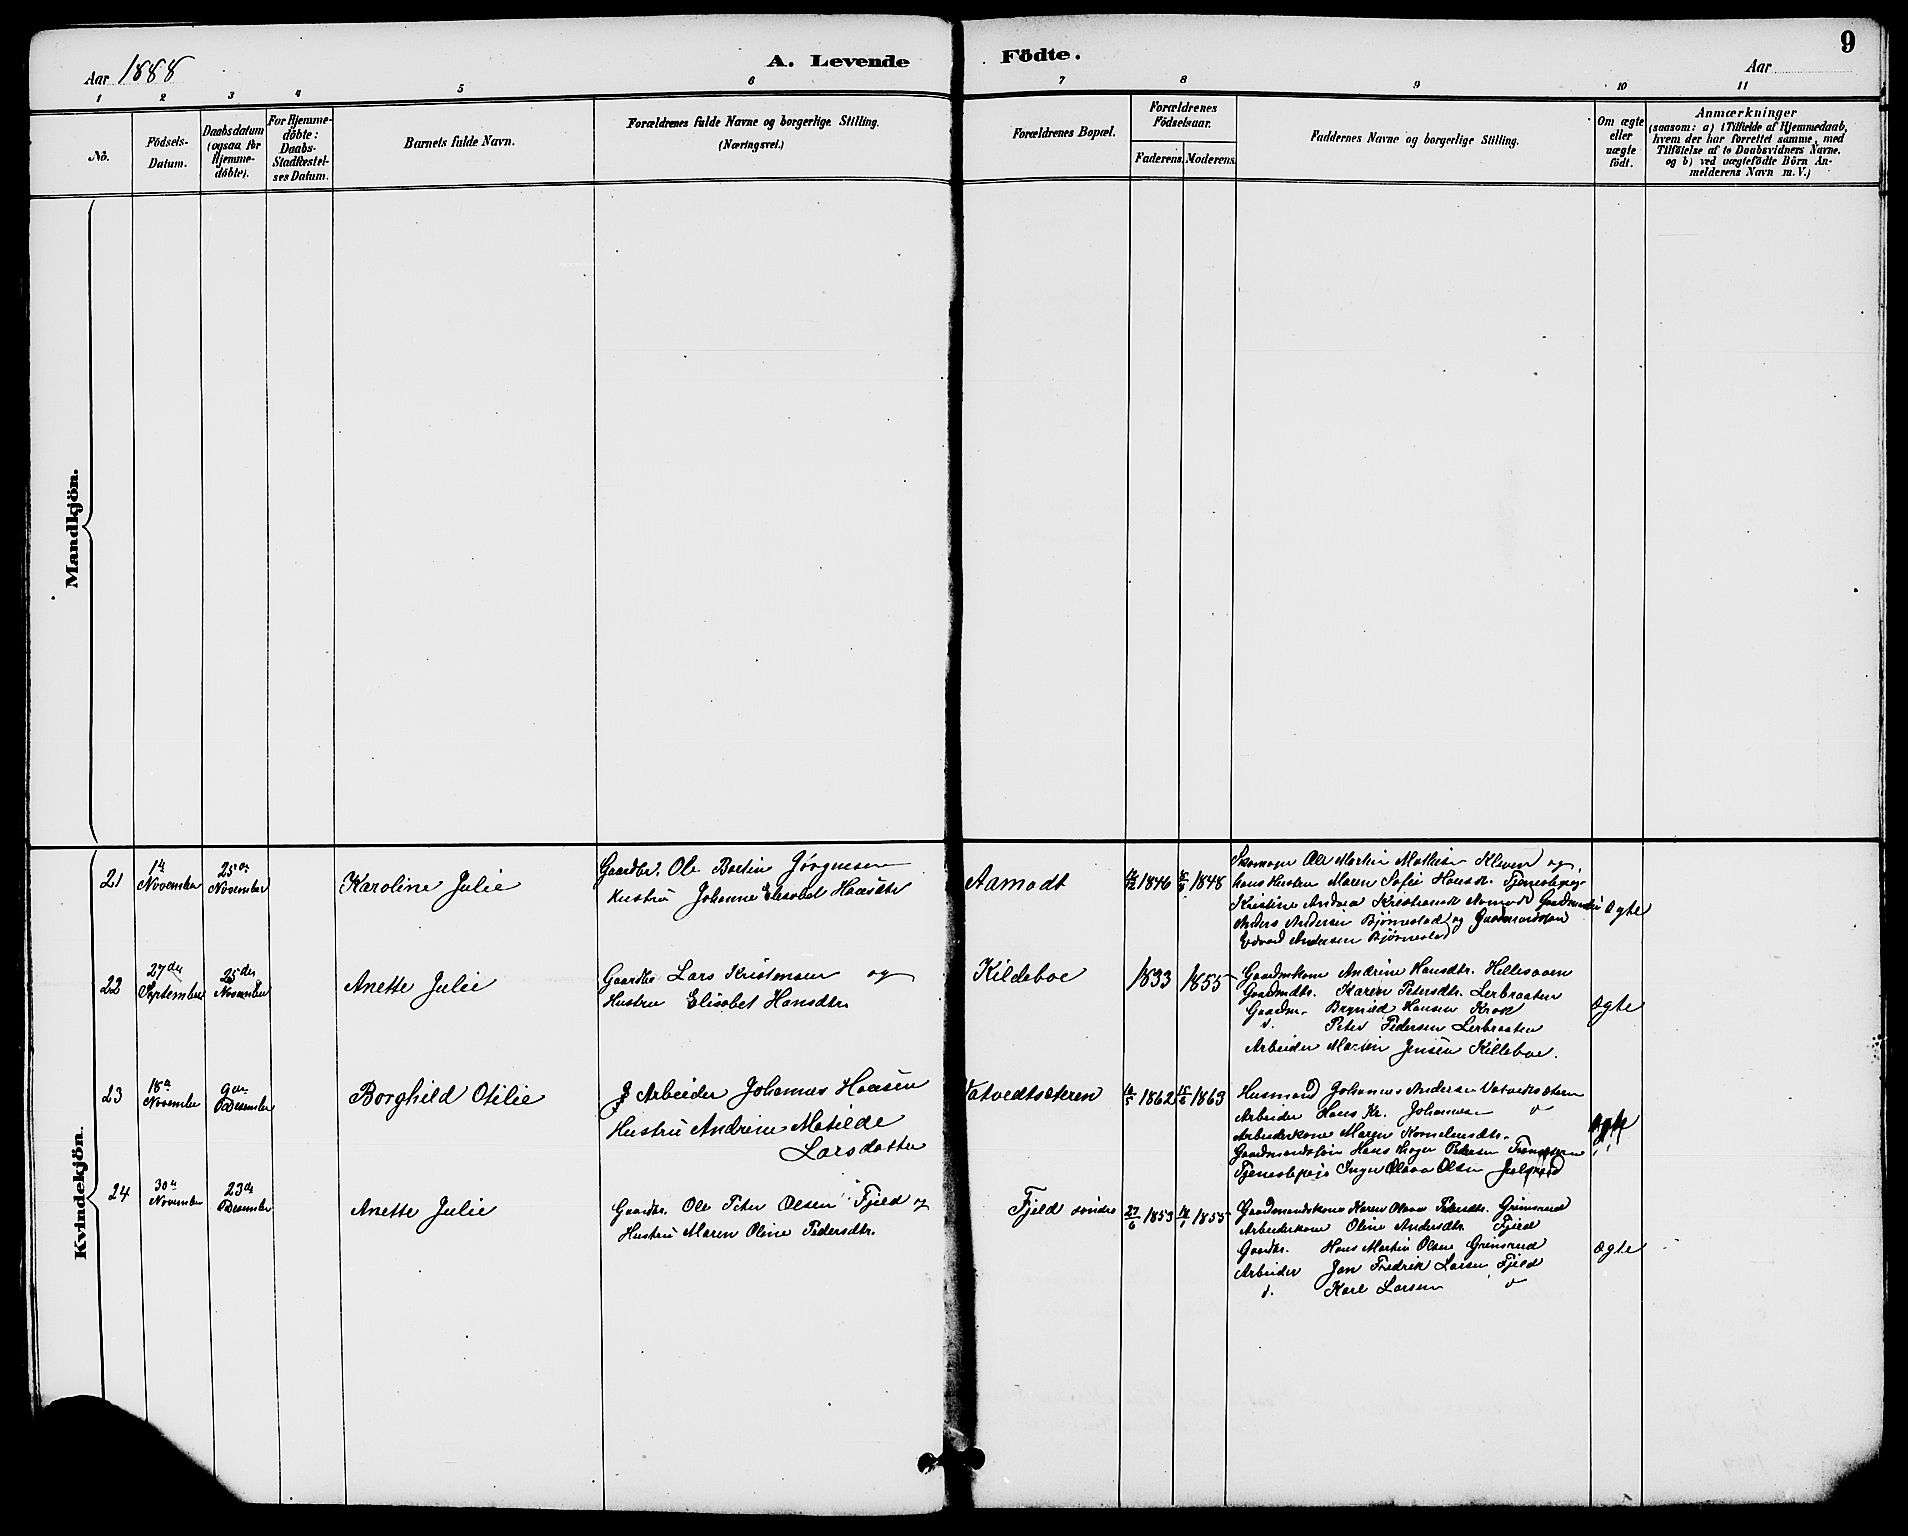 Aar 1888
A. Levende Födte.
9
Aar
1 2 3 4 5 6 7 8 9 10 11
No.
Födsels-
Datum.
Daabsdatum
(ogsaa for
Hjemme-
döbte).
For Hjemme-
döbte:
Daabs-
Stadfæstel-
ses Datum.
Barnets fulde Navn.
Forældrenes fulde Navne og borgerlige Stilling.
(Næringsvei.)
Forældrenes Bopæl.
Forældrenes
Födselsaar.
Faderens. Moderens.
Faddernes Navne og borgerlige Stilling.
Om ægte
eller
uægte
födt.
Anmærkninger
(saasom: a) i Tilfælde af Hjemmedaab,
hvem der har forrettet samme, med
Tilföielse af to Daabsvidners Navne.
og b) ved uægtefödte Börn An-
melderens Navn m. V.)
Mandkjön.
Kvindekjön.
21
14
November
25
November
Karoline Julie
Gaardbr. Ole Bertin Jørgensen
Hustru Johanne Elisabet Hansdtr
Aamodt
1846
1848
Skomager Ole Martin Mathisen Kleven og
hans Hustru Maren Sofie Hansdtr. Tjenestepige
Kristine Andrea Kristiansdtr Aamodt
Anders Andersen Bjørnestad og Gaardmandssøn
Edvard Andersen Bjørnestad
Ægte
22
27de
September
25de
November
Anette Julie
Gaardbr Lars Kristensen og
Hustru Elisabet Hansdtr.
Kildeboe
1833
1855
Gaardmkone Andrine Hansdtr. Hellesaaen
Gaardmdtr. Karen Petersdtr. Lerbraaten
Gaardm. Brynild Hansen Krok
d. Peter Pedersen Lerbraaten
Arbeider Martin Jensen Killeboe.
Ægte
23
18
November
9de
Desember
Borghild Otilie
Arbeider Johannes Hansen
Hustru Andrine Matilde
Larsdatter
Vatvedtsæteren
1862
1863
Husmand Johannes Andersen Vatvedtsæteren
Arbeider Hans Kr. Johannesen
Arbeiderkone Maren Kornelensdtr.
Gaardmandssøn Hans Petersen
Tjenestepige Inger Olava Olsen
Ægte
24
30
November
23de
Desember
Anette Julie
Gaardbr. Ole Peter Olsen Fjeld og
Hustru Maren Oline Pedersdtr.
Fjeld søndre
27/6 1853
1855
Gaardmandskone Karen Olava Petersdtr. Grinsrud
Arbeiderkone Oline Andersdtr. Fjeld
Gaardbr. Hans Martin Olsen Grinsrud
Arbeider Jan Fredrik Larsen Fjeld
d. Karl Larsen
Ægte